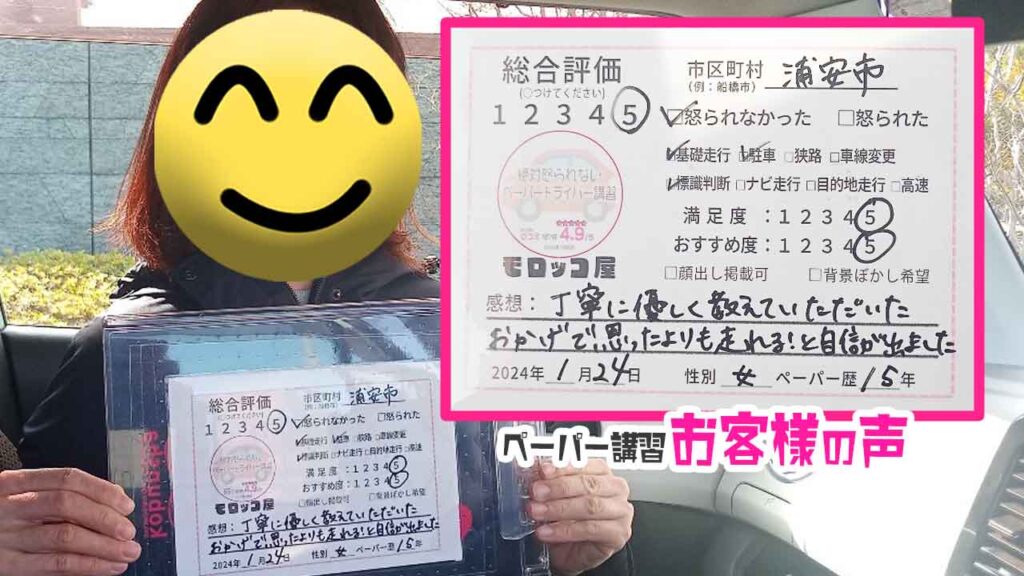 総合評価
(○つけてください)
1 2 3 4 5
市区町村 浦安市
(例：船橋市)
□怒られなかった □怒られた
□基礎走行 □駐車 □狭路 □車線変更
□標識判断 □ナビ走行 □目的地走行 □高速
満足度：1 2 3 4 5
おすすめ度：1 2 3 4 5
□顔出し掲載可 □背景ぼかし希望
絶対怒られない
ペーパードライバー講習
★★★★★
4.9/5
モロッコ屋
感想：丁寧に優しく教えていただいた
おかげで、思ったよりも走れる！と自信が出ました
2024年 1月24日 性別 女 ペーパー歴15年
ペーパー講習 お客様の声
総合評価
1 2 3 4 5
市区町村 浦安市
(例：船橋市)
□怒られなかった □怒られた
□基礎走行 □駐車 □狭路 □車線変更
□標識判断 □ナビ走行 □目的地走行 □高速
満足度：1 2 3 4 5
おすすめ度：1 2 3 4 5
□顔出し掲載可 □背景ぼかし希望
モロッコ屋
感想：丁寧に優しく教えていただいた
おかげで、思ったよりも走れる！と自信が出ました
2024年 1月24日 性別 女 ペーパー歴15年